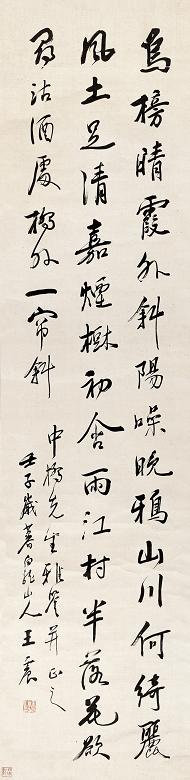 烏榜晴霞外斜陽噪晚鴉山川何綺麗
風土足清嘉煙樹初含雨江村半落花欲
尋沽酒處橋外一帘斜
中橋先生雅鑒并正之
壬子歲暮白龍山人王震